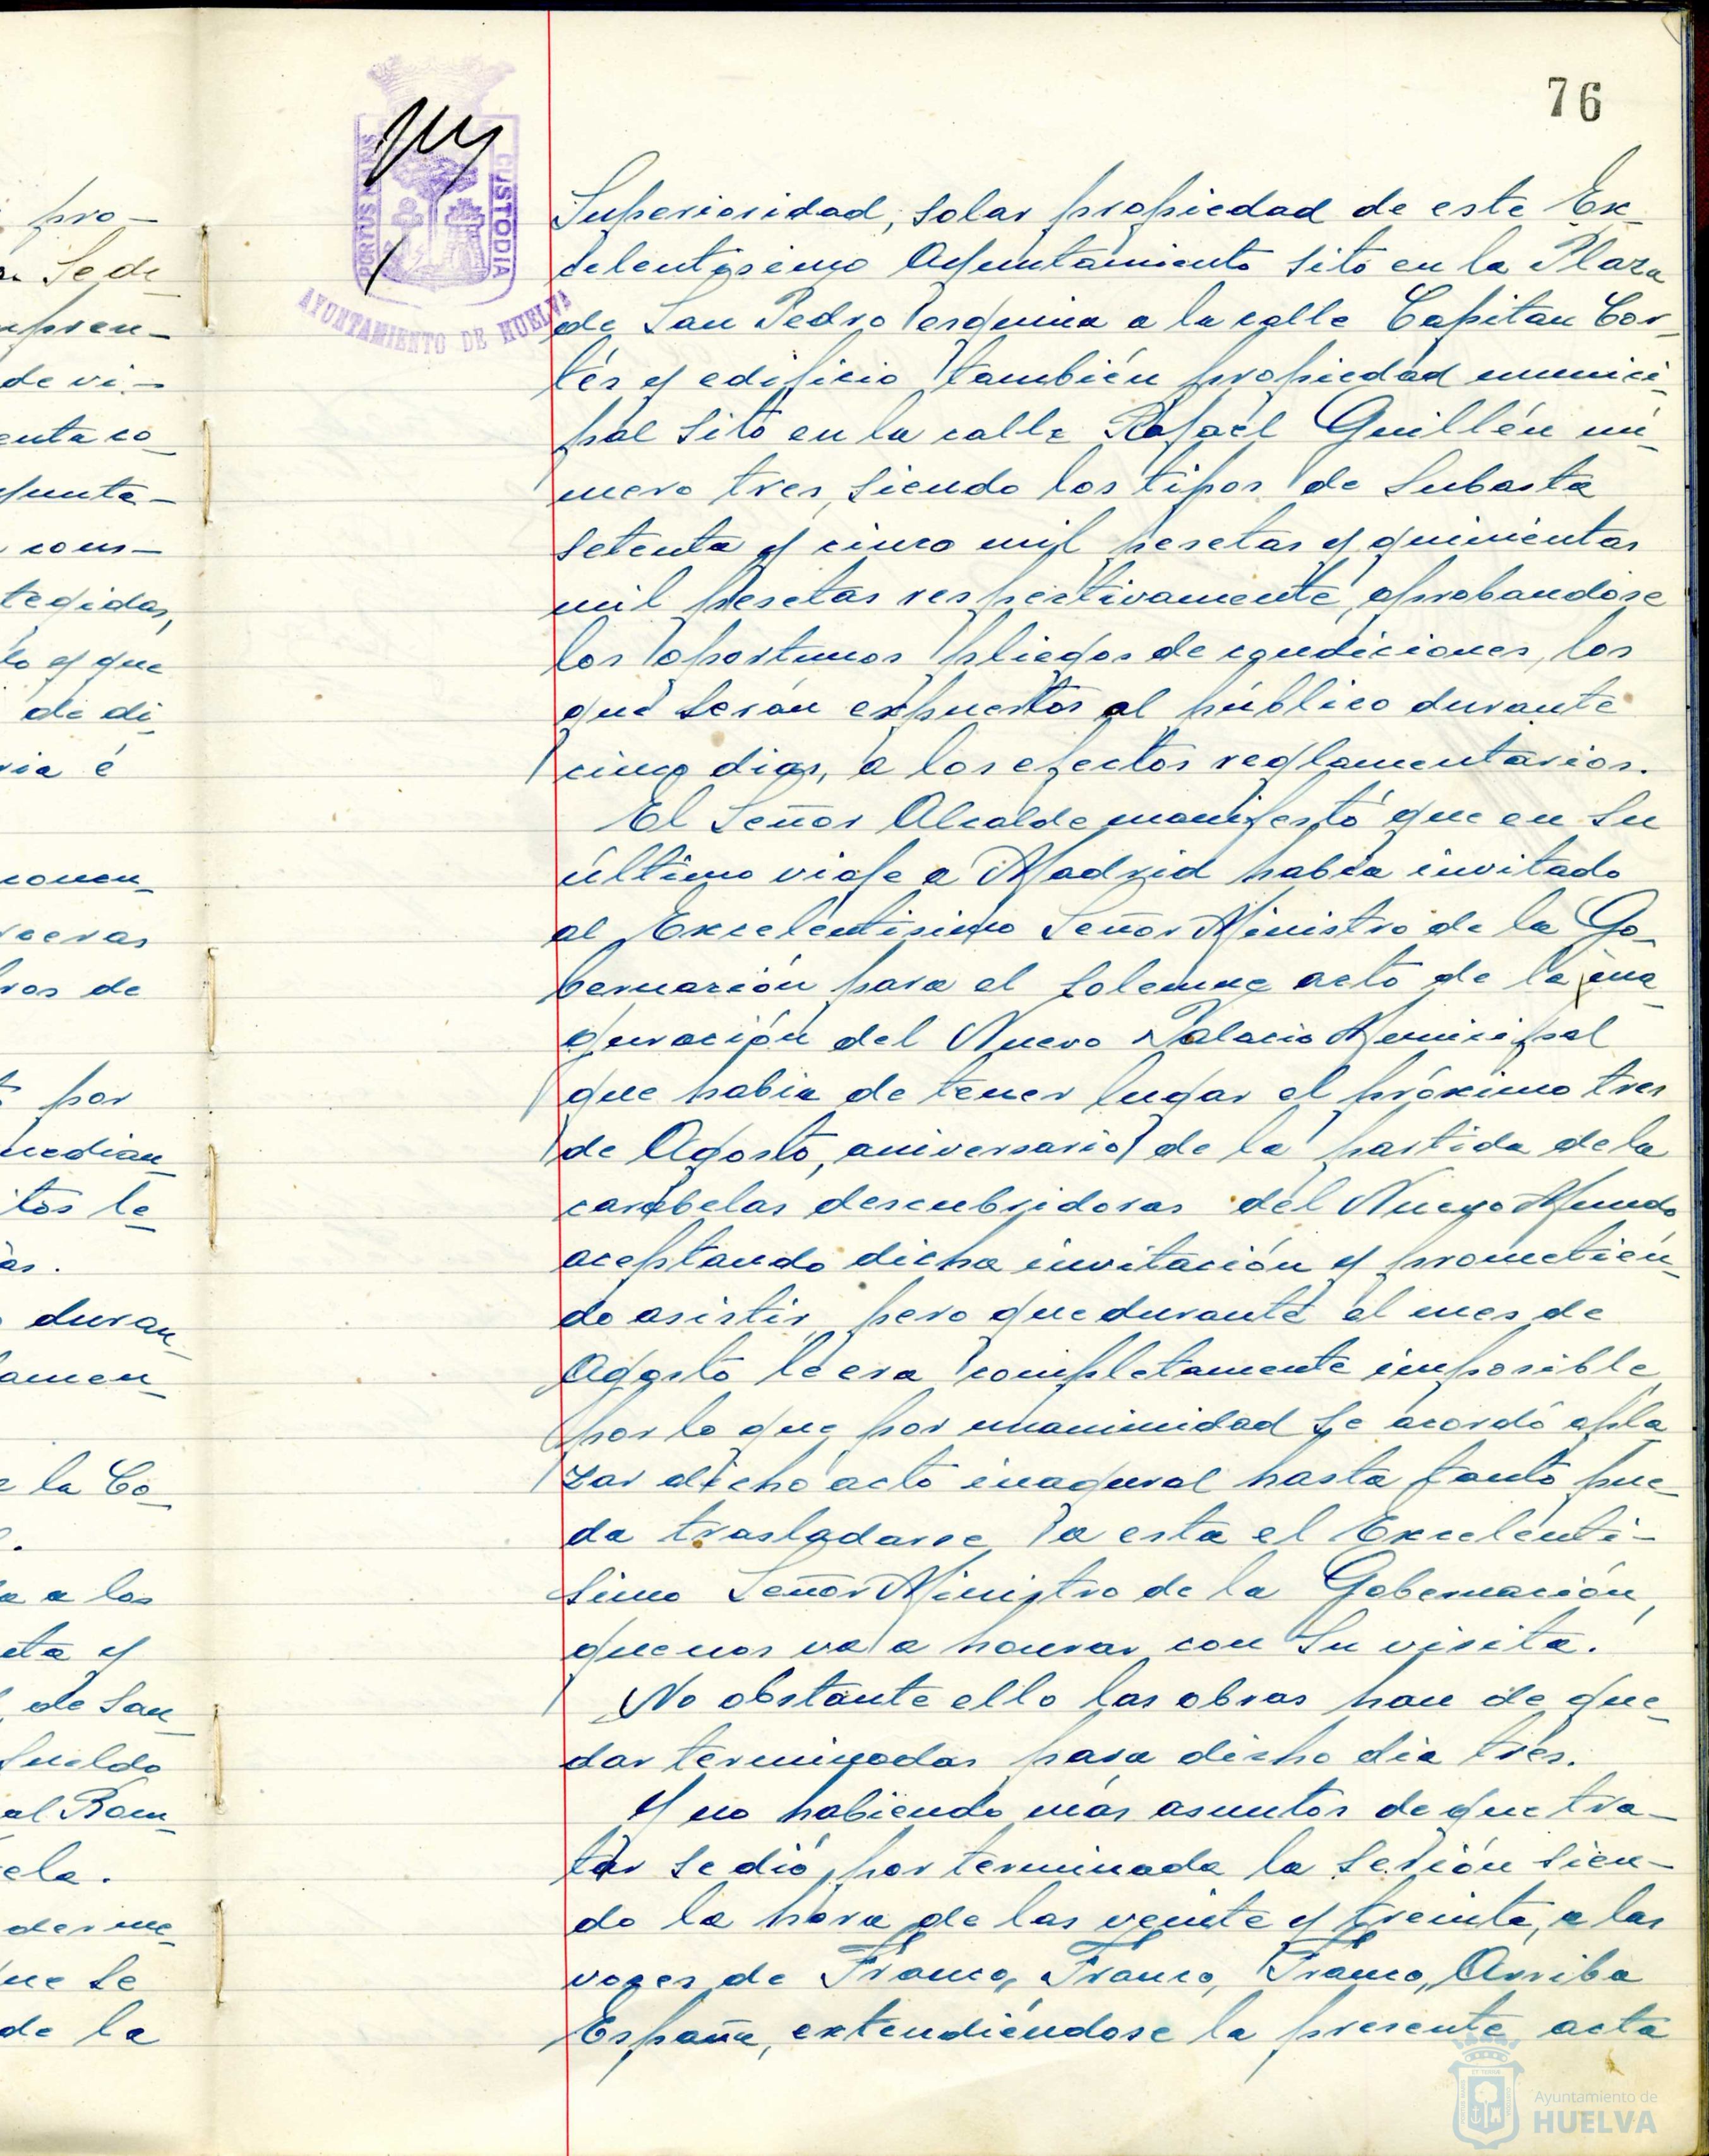 76
PORTUS MARIS
CUSTODIA
AYUNTAMIENTO DE HUELVA
Superioridad, solar propiedad de este Ex-
celentísimo Ayuntamiento sito en la Plaza
de San Pedro esquina a la calle Capitan Cor-
tés y edificio también propiedad munici-
pal sito en la calle Rafael Guillén nú-
mero tres, siendo los tipos de subasta
setenta y cinco mil pesetas y quinientas
mil pesetas respectivamente, aprobandose
los oportunos pliegos de condiciones, los
que serán expuestos al público durante
cinco dias, a los efectos reglamentarios.
El Señor Alcalde manifestó que en su
último viaje a Madrid habia invitado
al Excelentisimo Señor Ministro de la Go-
bernación para el solemne acto de la ina-
guración del Nuevo Palacio Municipal
que habia de tener lugar el próximo tres
de Agosto, aniversario de la partida de la
carabelas descubridoras del Nuevo Mundo
aceptando dicha invitación y prometien-
do asistir, pero que durante el mes de
Agosto le era completamente imposible,
por lo que por unanimidad se acordó apla-
zar dicho acto inagural hasta tanto pue-
da trasladarse a esta el Excelenti-
simo Señor Ministro de la Gobernación,
que nos va a honrar con su visita.
No obstante ello las obras han de que-
dar terminadas para dicho dia tres.
Y no habiendo más asuntos de que tra-
tar se dió por terminada la sesión sien-
do la hora de las veinte y treinta, a las
voces de Franco, Franco, Franco, Arriba
España, extendiéndose la presente acta
pro-
Sede
pren-
de vi-
enta co-
yunta-
cons-
tegidas,
lo y que
de di-
ria é
conen-
ros de
por
median-
tos le-
duran-
amen-
la Co-
a los
eta y
de San
Sueldo
al Rom-
ela.
ue se
de la
Ayuntamiento de
HUELVA